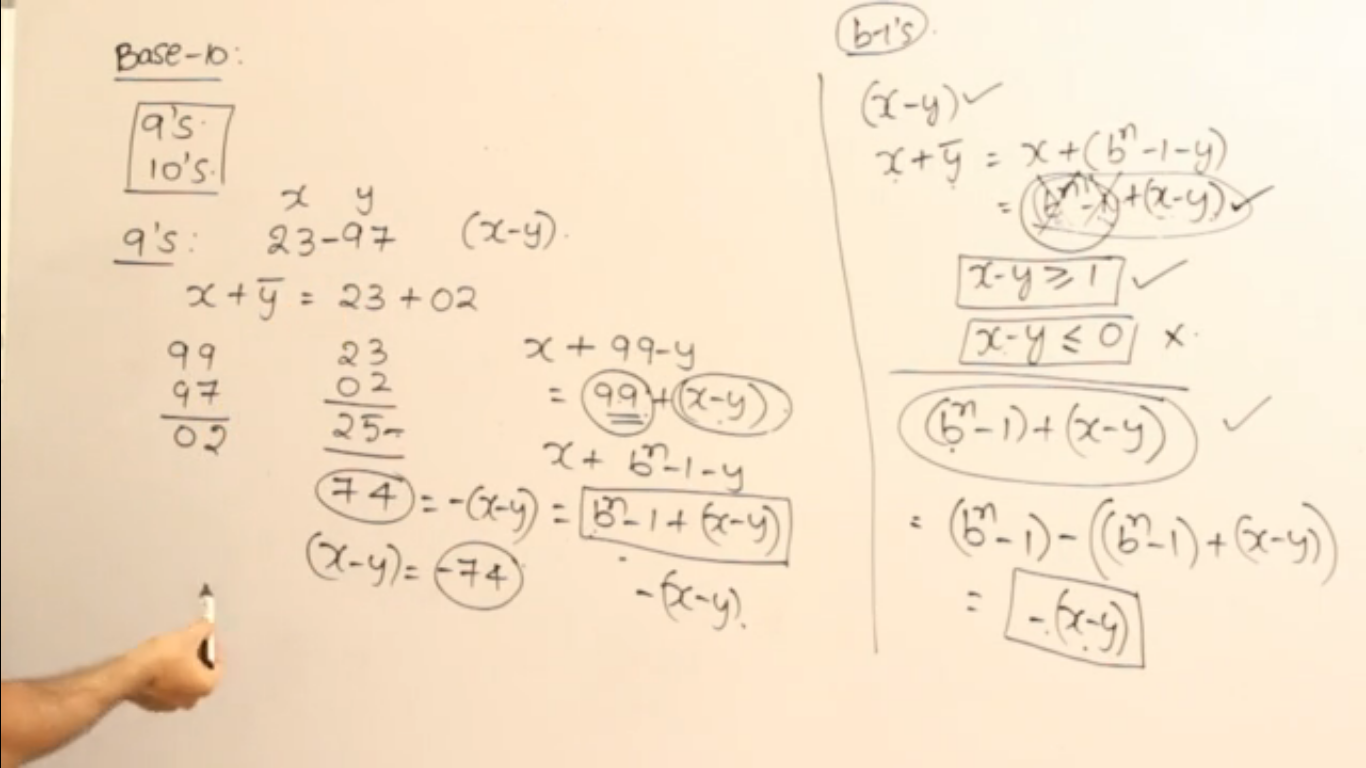 Base-10:
9's.
10's.
x y
9's: 23-97 (x-y).
x + ȳ = 23 + 02
99
97
02
23
02
25
x + 99-y
= 99 + (x-y)
x + bⁿ-1-y
74 = -(x-y) = bⁿ-1 + (x-y)
(x-y) = -74
-(x-y).
b-1's.
(x-y) ✓
x + ȳ = x + (bⁿ-1-y)
= bⁿ-1 + (x-y) ✓
x-y ≥ 1 ✓
x-y ≤ 0 ×.
(bⁿ-1) + (x-y) ✓
= (bⁿ-1) - ((bⁿ-1) + (x-y))
= -(x-y)